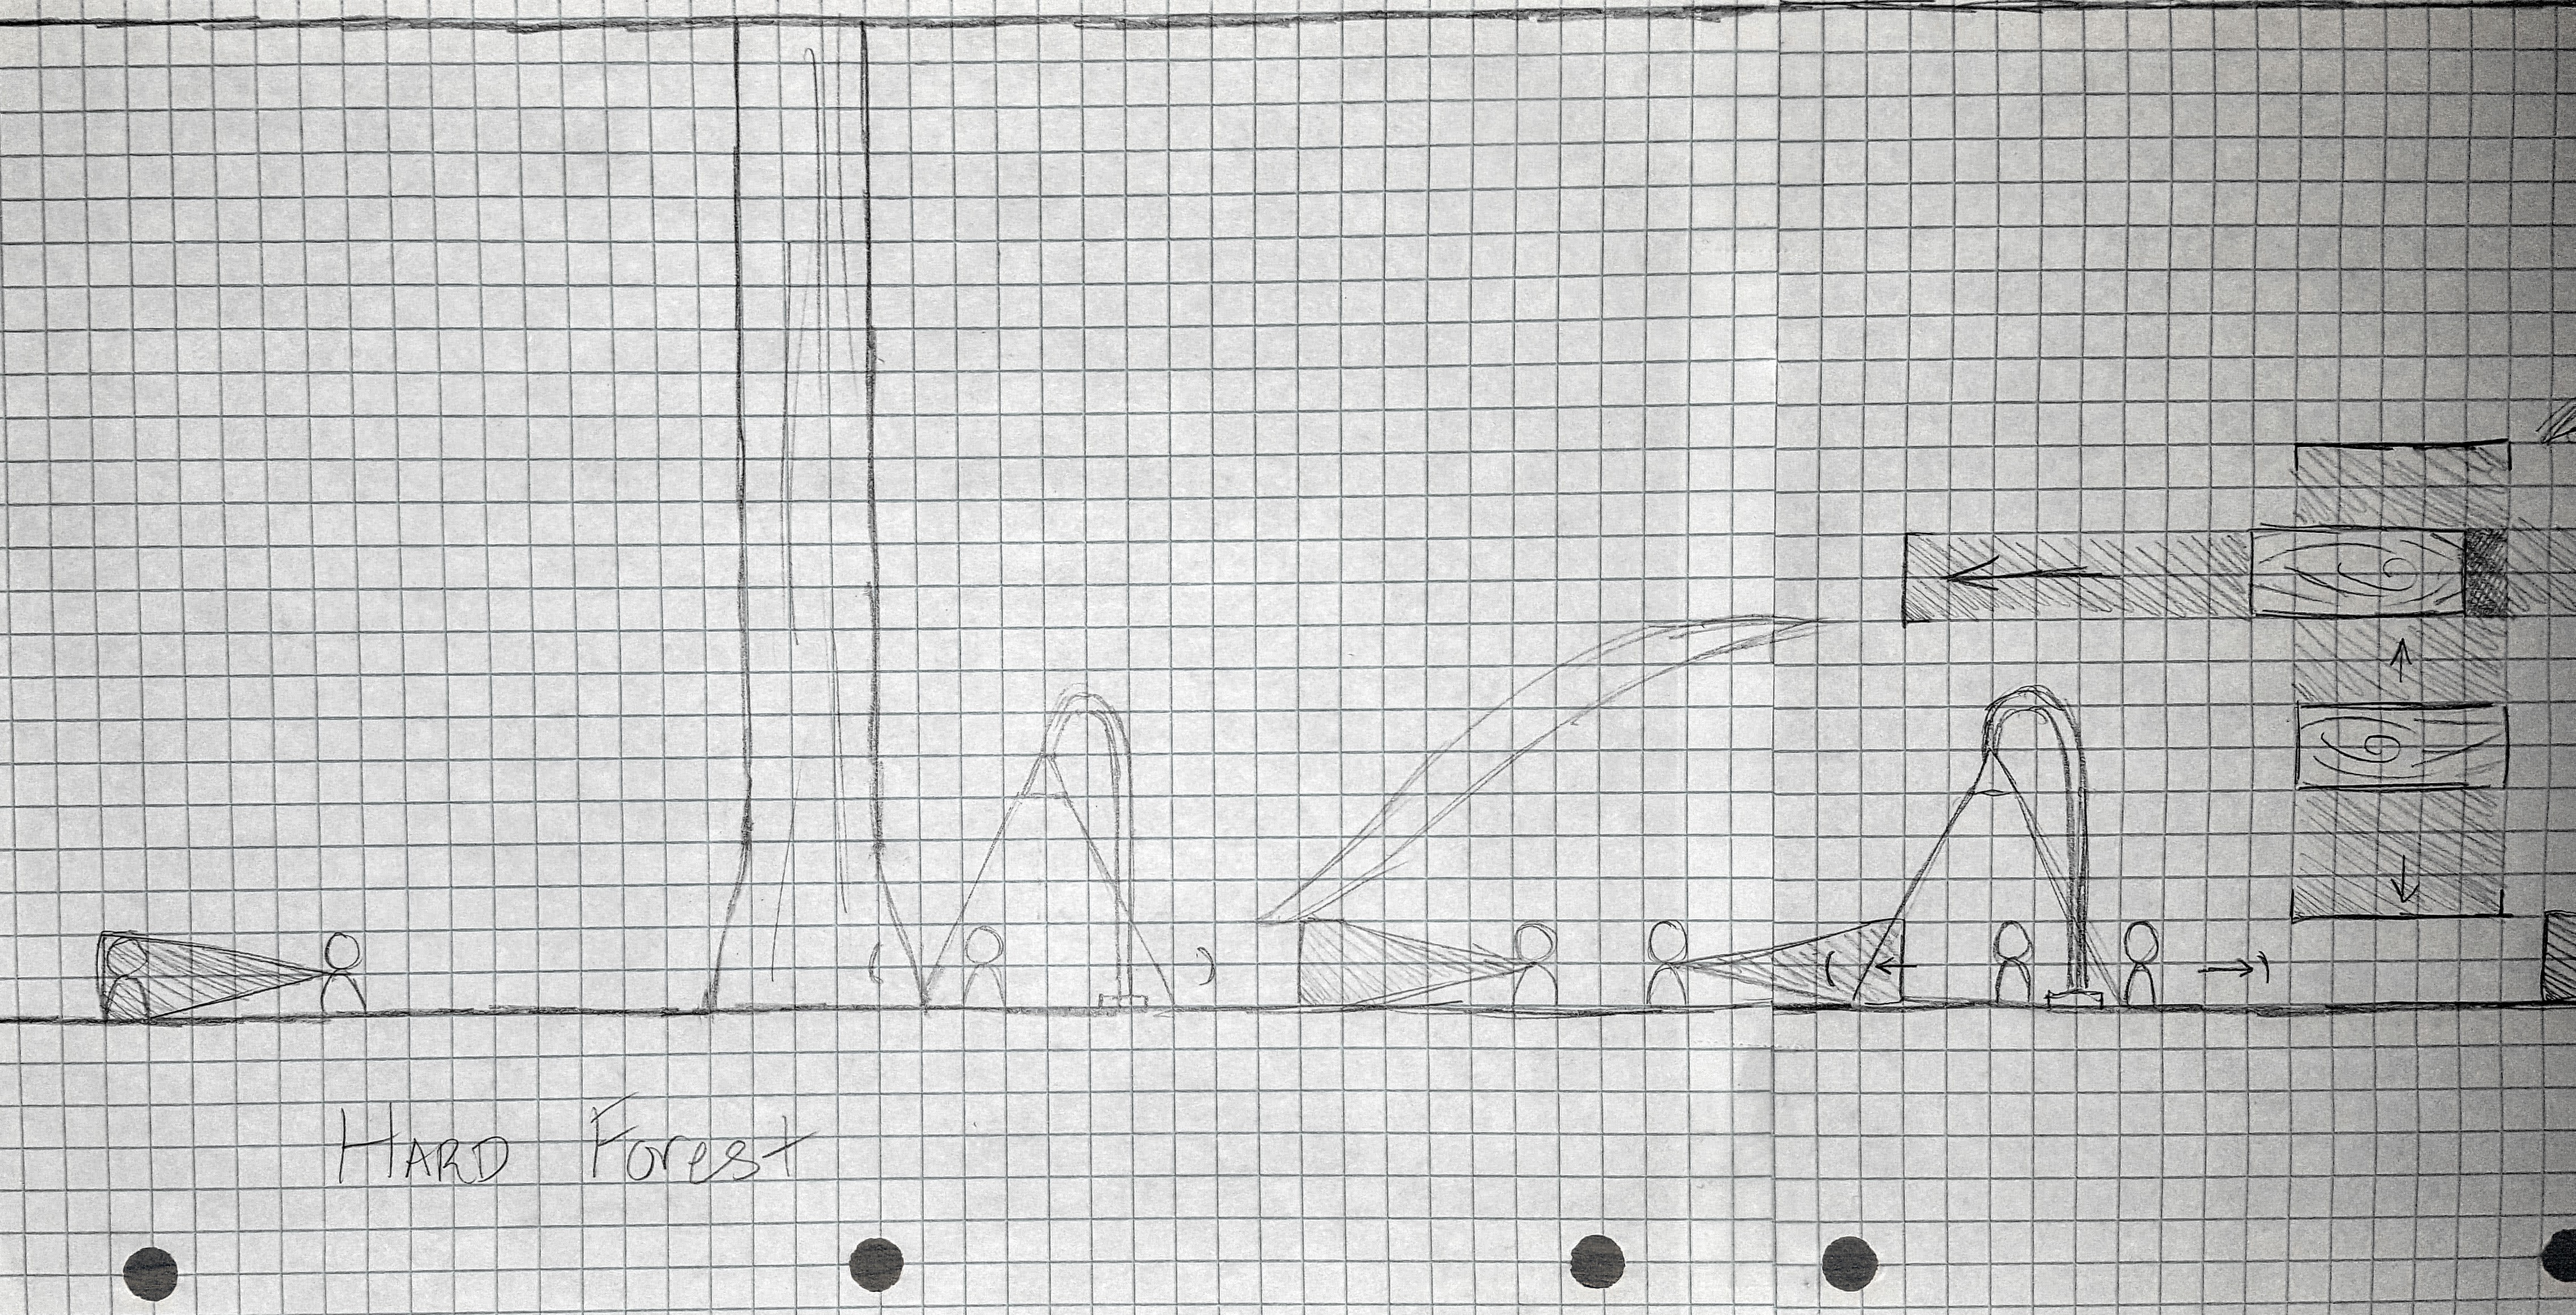 HARD Forest